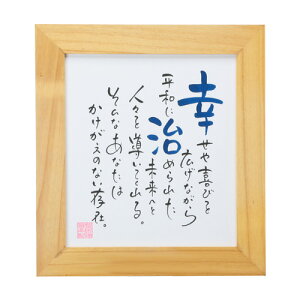 幸せや喜びを
広げながら
平和に治められた
未来へと
人々を導いて出る。
そんなあなたは
かけがえのない存在。